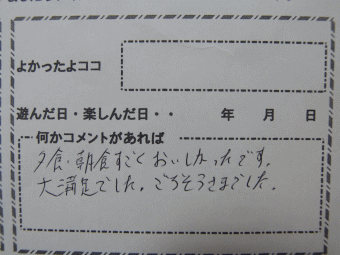 よかったよココ
遊んだ日・楽しんだ日・・　年　月　日
何かコメントがあれば
夕食・朝食すごくおいしかったです。
大満足でした。ごちそうさまでした。